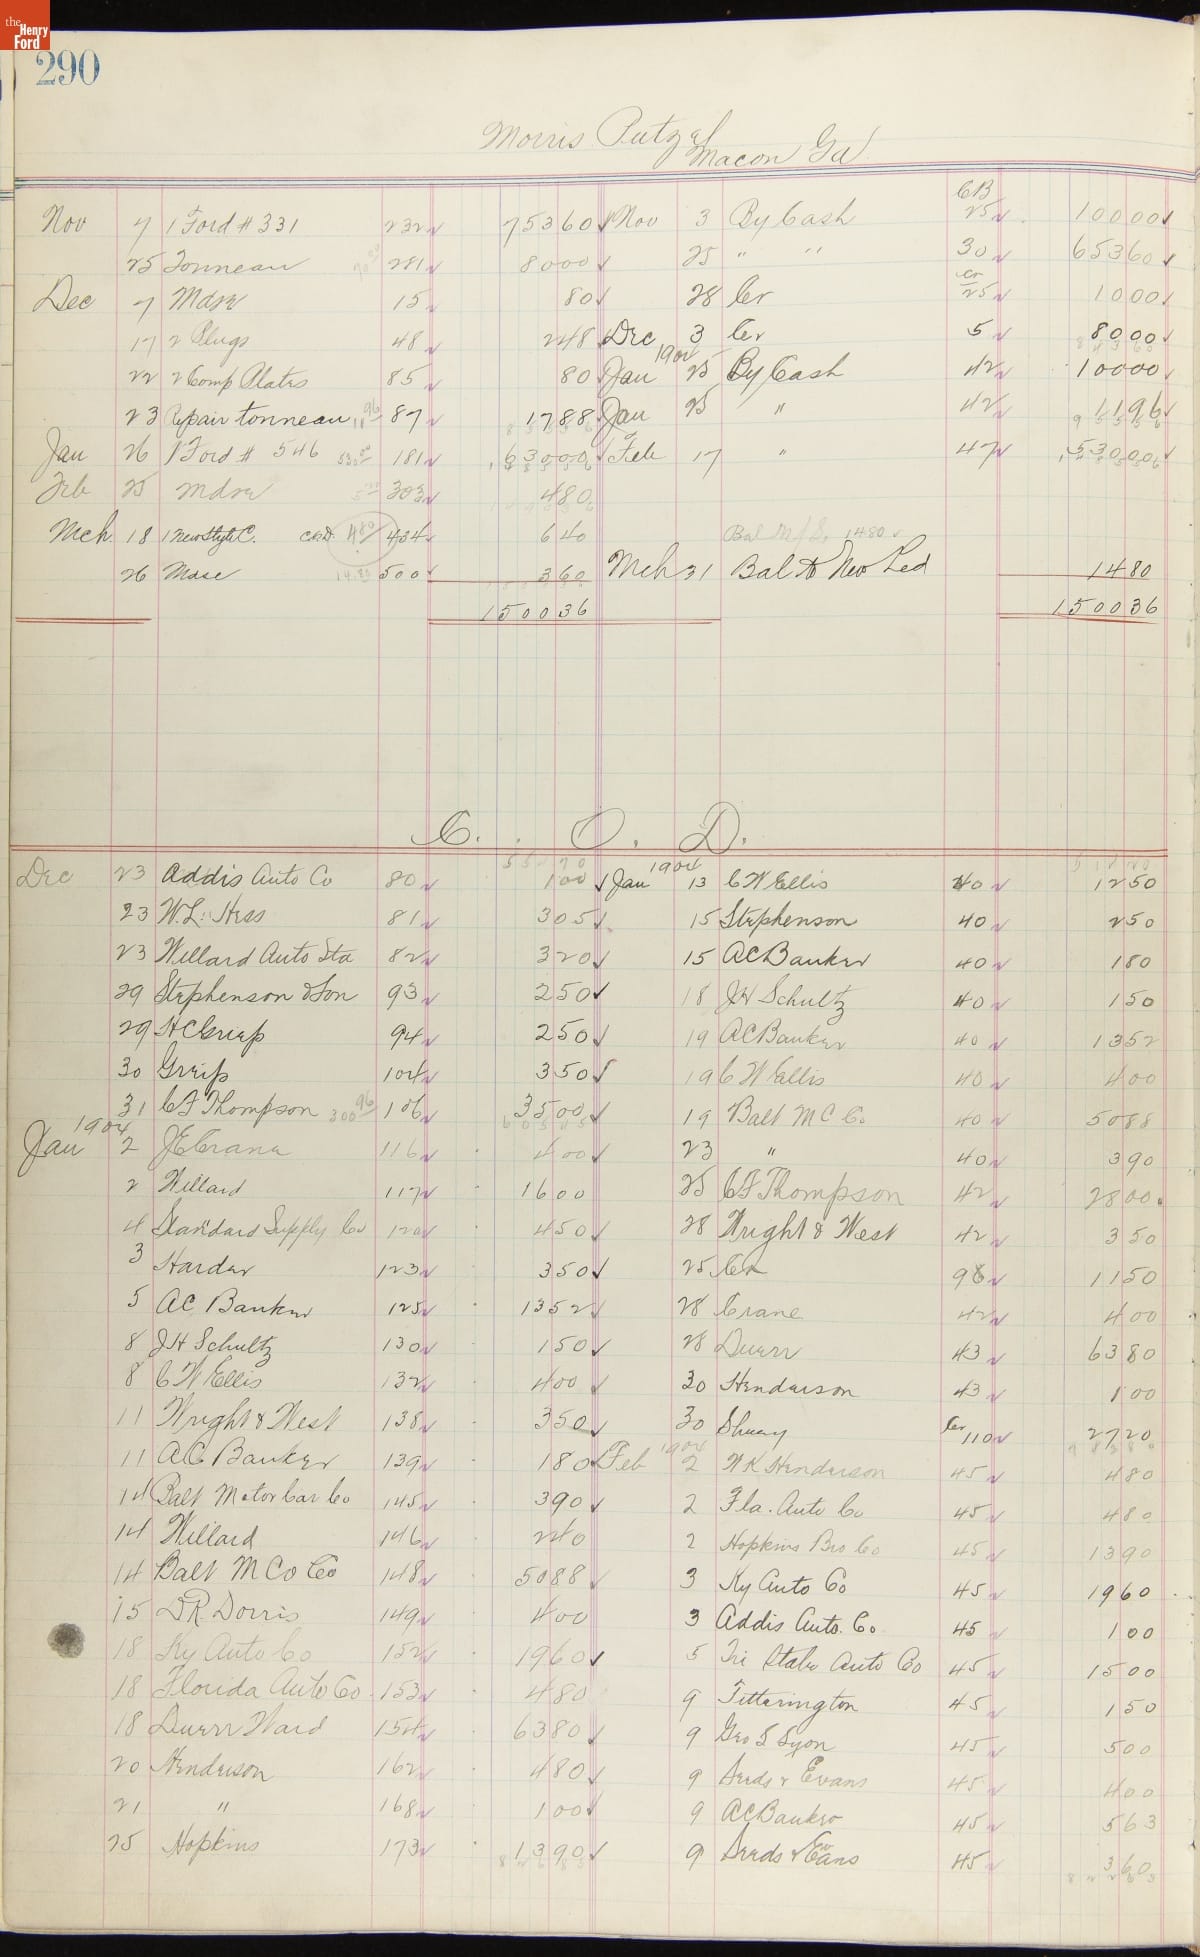 the
Henry
Ford
290
Morris Putzel
Macon Ga
CB
Nov 7 1 Ford # 331 232 753 60 Nov 3 By Cash 25 100 00
25 Tonneau 281 80 00 25 " " 30 653 60
Dec 7 Mdse 15 80 28 Cr Cr 25 10 00
17 2 Plugs 48 2 48 Dec 3 Cr 5 80 00
1904
22 2 Comp Plates 85 80 Jan 25 By Cash 42 100 00
23 Repair tonneau 87 17 88 Jan 25 " 42 11 96
Jan 26 1 Ford # 546 181 630 00 Feb 17 " 47 530 00
Feb 25 Mdse 303 4 80
Mch 18 1 New Style C. 480 434 6 40 Bal M/S, 1480
26 Mdse 14.80 500 3 60 Mch 31 Bal to New Led 14 80
1500 36 1500 36
C. O. D.
1904
Dec 23 Addis Auto Co 80 1 00 Jan 13 C W Ellis 40 12 50
23 W.L. Hess 81 3 05 15 Stephenson 40 2 50
23 Willard Auto Sta 82 3 20 15 AC Banker 40 1 80
29 Stephenson & Son 93 2 50 18 JH Schultz 40 1 50
29 94 2 50 19 AC Banker 40 13 52
30 104 3 50 19 C W Ellis 40 4 00
31 C F Thompson 106 35 00 19 Balt M C Co. 40 50 88
1904
Jan 2 J E Crane 116 4 00 23 " 40 3 90
2 Willard 117 16 00 25 CF Thompson 42 28 00
4 Standard Supply Co 120 4 50 28 Wright & West 42 3 50
3 Harder 123 3 50 25 Cr 96 11 50
5 AC Banker 125 13 52 28 Crane 42 4 00
8 JH Schultz 130 1 50 28 Duerr 43 63 80
8 C W Ellis 132 4 00 30 Henderson 43 1 00
11 Wright & West 138 3 50 30 Cr 110 27 20
1904
11 AC Banker 139 1 80 Feb 2 W K Henderson 45 4 80
14 Balt Motor Car Co 145 3 90 2 Fla. Auto Co 45 4 80
14 Willard 146 2 40 2 Hopkins Bro Co 45 13 90
14 Balt M Co Co 148 50 88 3 Ky Auto Co 45 19 60
15 D R Dorris 149 4 00 3 Addis Auto. Co. 45 1 00
18 Ky Auto Co 152 19 60 5 Tri State Auto Co 45 15 00
18 Florida Auto Co 153 4 80 9 Titterington 45 1 50
18 Duerr Ward 154 63 80 9 Geo S Lyon 45 5 00
20 Henderson 162 4 80 9 Seeds & Evans 45 4 00
21 " 168 1 00 9 AC Banker 45 5 63
25 Hopkins 173 13 90 9 Seeds & Evans 45 3 60